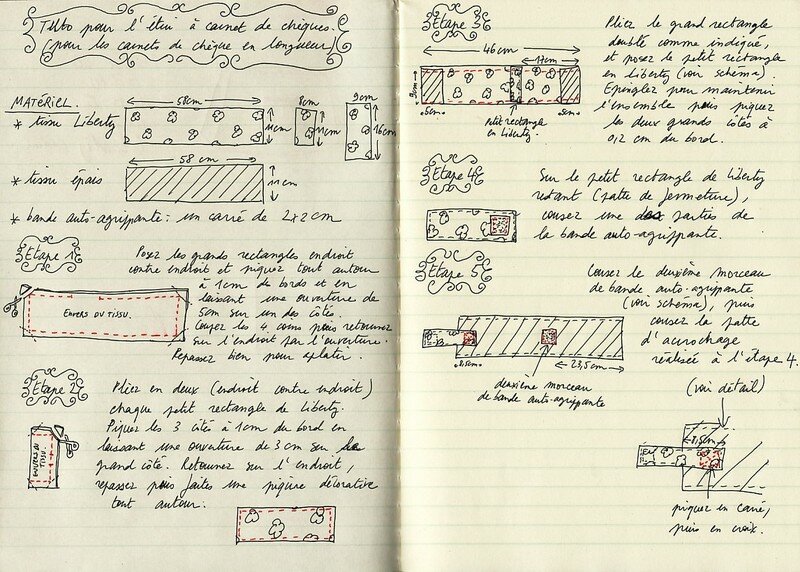 TUTO pour l'étui à carnet de chèques.
(pour les carnets de chèque en longueur)
MATÉRIEL.
* tissu Liberty
58cm
11cm
8cm
11cm
9cm
16cm
* tissu épais
58 cm
11cm
* bande auto-agrippante: un carré de 2x2cm
Etape 1
Posez les grands rectangles endroit
contre endroit et piquez tout autour
à 1cm de bords et en
laissant une ouverture de
5cm sur un des côtés.
Coupez les 4 coins puis retournez
sur l'endroit par l'ouverture.
Repassez bien pour aplatir.
ENVERS DU TISSU.
Etape 2
Pliez en deux (endroit contre endroit)
chaque petit rectangle de liberty.
Piquez les 3 côtés à 1cm du bord en
laissant une ouverture de 3cm sur le
grand côté. Retournez sur l'endroit,
repassez puis faites une piqûre décorative
tout autour.
ENVERS DU
TISSU.
Etape 3
46cm
17cm
9cm
5cm
5cm
petit rectangle
en liberty.
Pliez le grand rectangle
doublé comme indiqué,
et posez le petit rectangle
en liberty (voir schéma).
Epinglez pour maintenir
l'ensemble puis piquez
les deux grands côtés à
0,2 cm du bord.
Etape 4
Sur le petit rectangle de liberty
restant (patte de fermeture),
cousez une des parties de
la bande auto-agrippante.
Etape 5
Cousez le deuxième morceau
de bande auto-agrippante
(voir schéma), puis
cousez la patte
d'accrochage
réalisée à l'étape 4.
(voir détail)
23,5cm
deuxième morceau
de bande auto-agrippante
1,5cm
piquez en carré,
puis en croix.